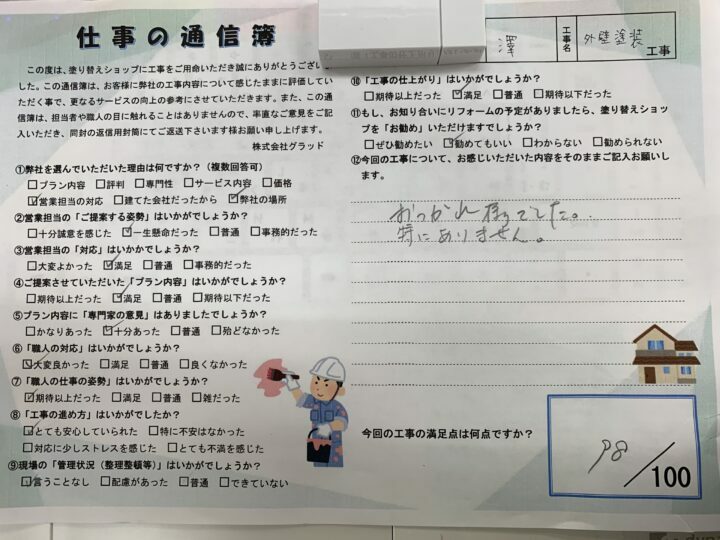 仕事の通信簿
この度は、塗り替えショップに工事をご用命いただき誠にありがとうござい
した。この通信簿は、お客様に弊社の工事内容について感じたままに評価してい
ただく事で、更なるサービスの向上の参考にさせていただきます。また、この
信簿は、担当者や職人の目に触れることはありませんので、率直なご意見をご記
入いただき、同封の返信用封筒にてご返送下さいます様お願い申し上げます。
株式会社グラッド
①弊社を選んでいただいた理由は何ですか？（複数回答可）
□プラン内容 □評判 □専門性 □サービス内容 □価格
☑営業担当の対応 □建てた会社だったから ☑弊社の場所
②営業担当の「ご提案する姿勢」はいかがでしょうか？
□十分誠意を感じた ☑一生懸命だった □普通 □事務的だった
③営業担当の「対応」はいかかでしょうか？
□大変よかった ☑満足 □普通 □事務的だった
④ご提案させていただいた「プラン内容」はいかがでしょうか？
□期待以上だった ☑満足 □普通 □期待以下だった
⑤プラン内容に「専門家の意見」はありましたでしょうか？
□かなりあった ☑十分あった □普通 □殆どなかった
⑥「職人の対応」はいかがでしょうか？
☑大変良かった □満足 □普通 □良くなかった
⑦「職人の仕事の姿勢」はいかがでしょうか？
☑期待以上だった □満足 □普通 □雑だった
⑧「工事の進め方」はいかがでしたか？
☑とても安心していられた □特に不安はなかった
□対応に少しストレスを感じた □とても不満を感じた
⑨現場の「管理状況（整理整頓等）」はいかがでしょうか？
☑言うことなし □配慮があった □普通 □できていない
澤 工事名 外壁塗装 工事
⑩「工事の仕上がり」はいかがでしょうか？
□期待以上だった ☑満足 □普通 □期待以下だった
⑪もし、お知り合いにリフォームの予定がありましたら、塗り替えショッ
プを「お勧め」いただけますでしょうか？
□ぜひ勧めたい ☑勧めてもいい □わからない □勧められない
⑫今回の工事について、お感じいただいた内容をそのままご記入お願いし
ます。
おつかれ様でした。
特にありません。
今回の工事の満足点は何点ですか？
98/100